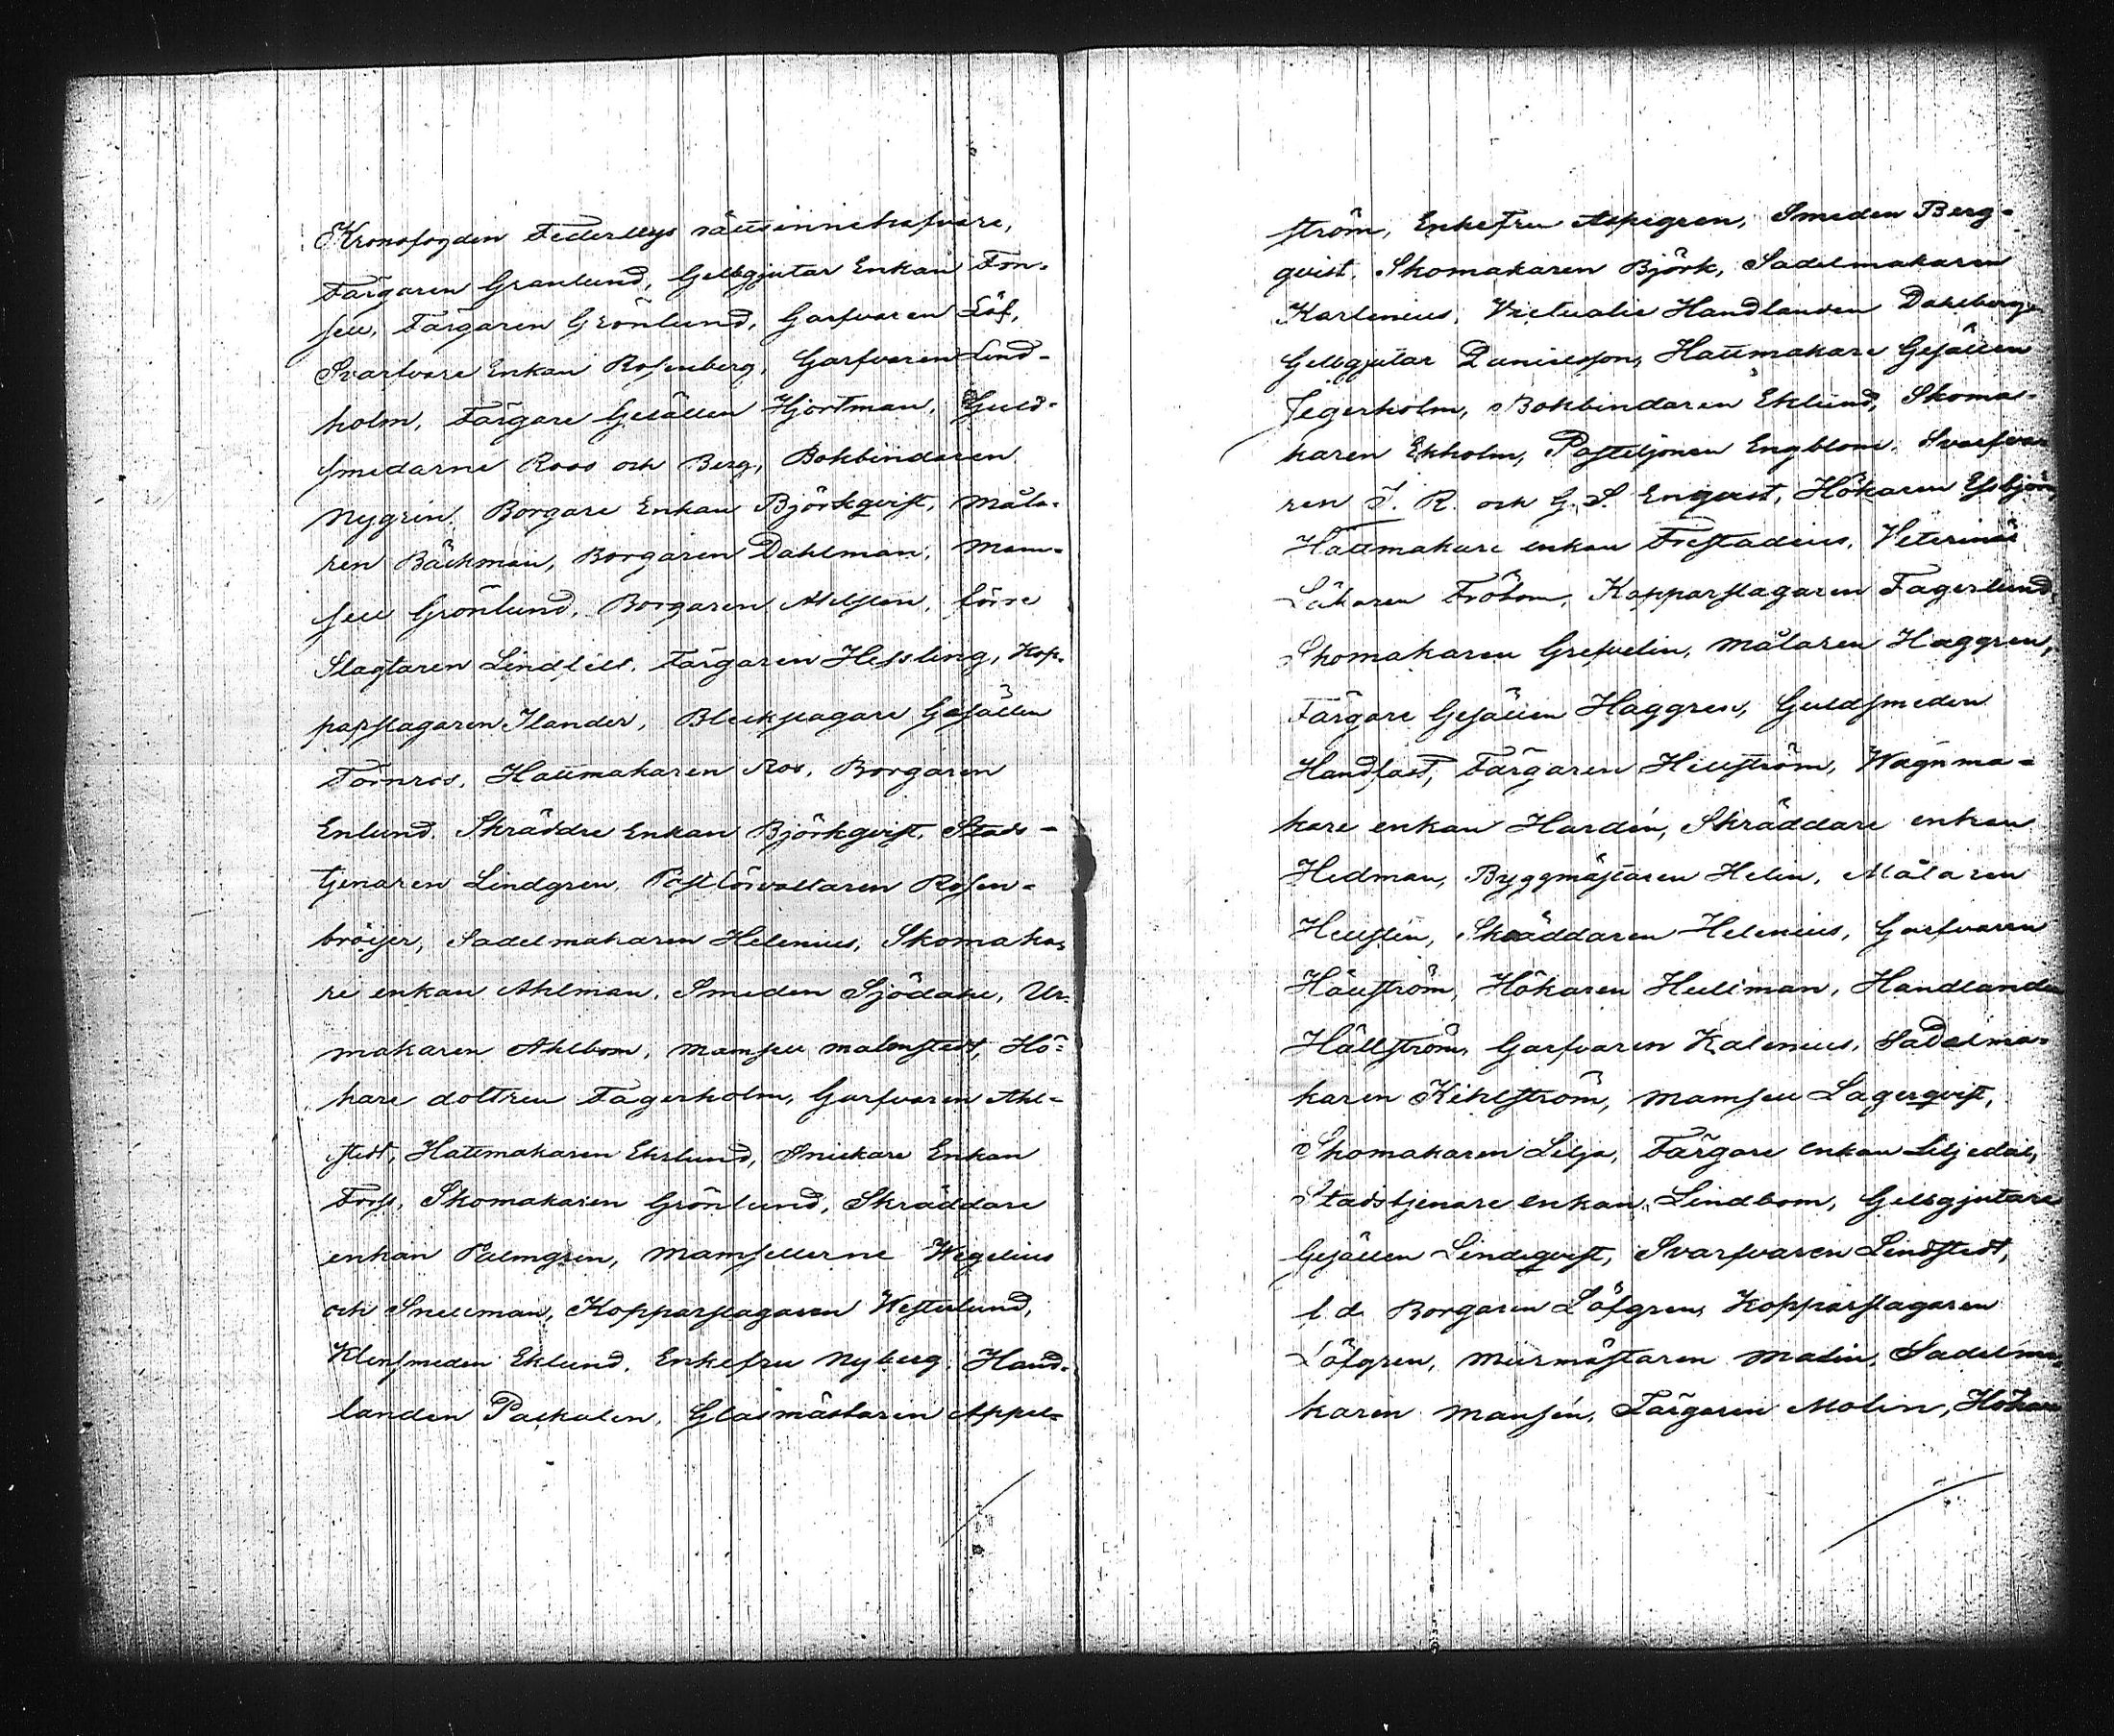 Kronofogden Federleys rättsinnehafvare,
Färgaren Granlund, Gelbgjutar Enkan Fon-
sell, Färgaren Grönlund, Garfvaren Löf,
Svarfvare Enkan Rosenberg, Garfvaren Lind-
holm, Färgare Gesällen Hjortman, Guld-
smedarne Roos och Berg, Bokbindaren
Nygrén, Borgare Enkan Björkqvist, Måla-
ren Bäckman, Borgaren Dahlman, Mam-
sell Grönlund, Borgaren Ahlsten, förre
Slagtaren Lindfelt, Färgaren Hessling, Kop-
parslagaren Ilander, Bleckslagare Gesällen
Törnros, Hattmakaren Ros, Borgaren
Enlund, Skräddre Enkan Björkqvist, Stads-
tjenaren Lindgren, Postförvaltaren Rosen-
bröijer, Sadelmakaren Helenius, Skomaka-
re enkan Ahlman, Smeden Sjödahl, Ur-
makaren Ahlbom, Mamsell Malmstedt, Hö-
kare dottren Fagerholm, Garfvaren Ahl-
stedt, Hattmakaren Ekelund, Snickare Enkan
Forss, Skomakaren Grönlund, Skräddare
enkan Palmgren, Mamsellerne Wegelius
och Snellman, Kopparslagaren Westerlund,
Klensmeden Eklund, Enkefru Nyberg, Hand-
landen Packalen, Glasmästaren Appel-
ström, Enkefru Aspegren, Smeden Berg-
qvist, Skomakaren Björk, Sadelmakaren
Karlenius, Victualie Handlanden Dahlberg,
Gelbgjutar Danielsson, Hattmakare Gesällen
Jegerholm, Bokbindaren Eklund, Skoma-
karen Ekholm, Postiljonen Engblom, Svarfva-
ren J. R. och G. S. Enqvist, Hökaren Esbjörn
Hattmakare enkan Frestadius, Veterinär
Läkaren Fröbom, Kopparslagaren Fagerlund,
Skomakaren Grefvelin, Målaren Haggren,
Färgare Gesällen Haggren, Guldsmeden
Handfast, Färgaren Hellström, Wagnma-
kare enkan Hardén, Skräddare enkan
Hedman, Byggmästaren Helin, Målaren
Hellstén, Skräddaren Helenius, Garfvaren
Hällström, Hökaren Hellman, Handlanden
Hällström, Garfvaren Kalenius, Sadelma-
karen Kihlström, Mamsell Lagerqvist,
Skomakaren Lilja, Färgare enkan Liljedal,
Stadstjenare enkan Lindbom, Gelbgjutare
Gesällen Lindeqvist, Svarfvaren Lindstedt,
f. d. Borgaren Löfgren, Kopparslagaren
Löfgren, Murmästaren Malin, Sadelma-
karen Mansén, Färgaren Molin, Hökare